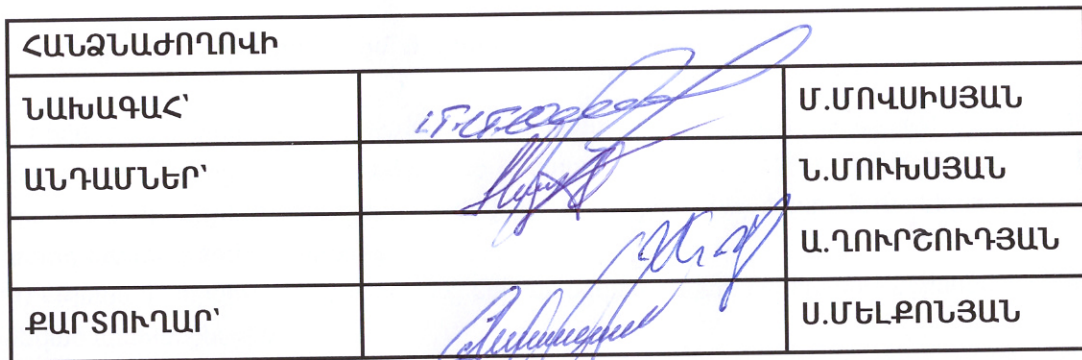 ՀԱՆՁՆԱԺՈՂՈՎԻ
ՆԱԽԱԳԱՀ՝ Մ.ՄՈՎՍԻՍՅԱՆ
ԱՆԴԱՄՆԵՐ՝ Ն.ՄՈՒԽՍՅԱՆ
Ա.ՂՈՒՐՇՈՒԴՅԱՆ
ՔԱՐՏՈՒՂԱՐ՝ Ս.ՄԵԼՔՈՆՅԱՆ